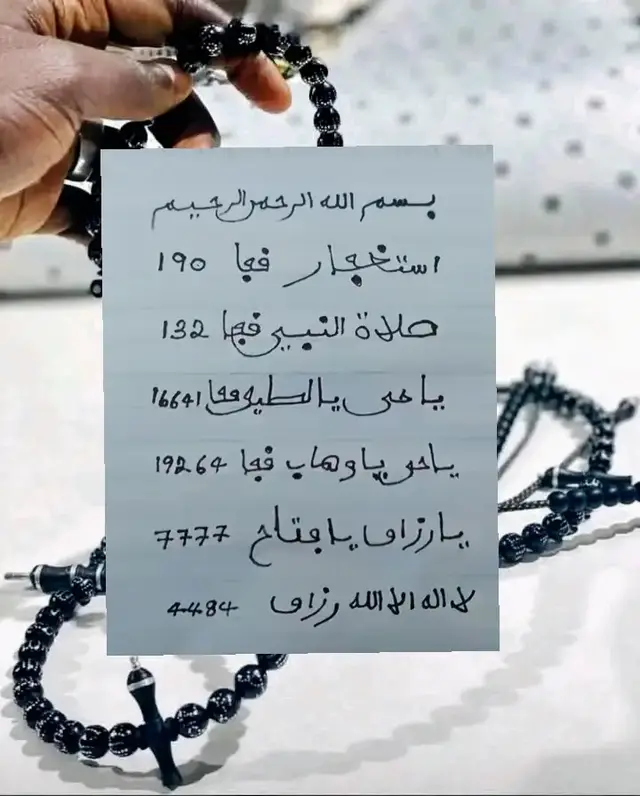 بسم الله الرحمن الرحيم
استغجار فجا 190
صلاة النبي فجا 132
يا حي يا لطيف فجا 16641
يا حو يا وهاب فجا 19264
يا رزاق يا فتاح 7777
لا اله الا الله رزاق 4484